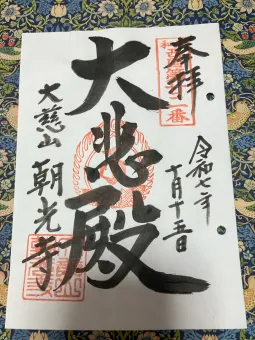 奉拝
令和七年
十月十五日
大悲殿
大慈山
朝光寺